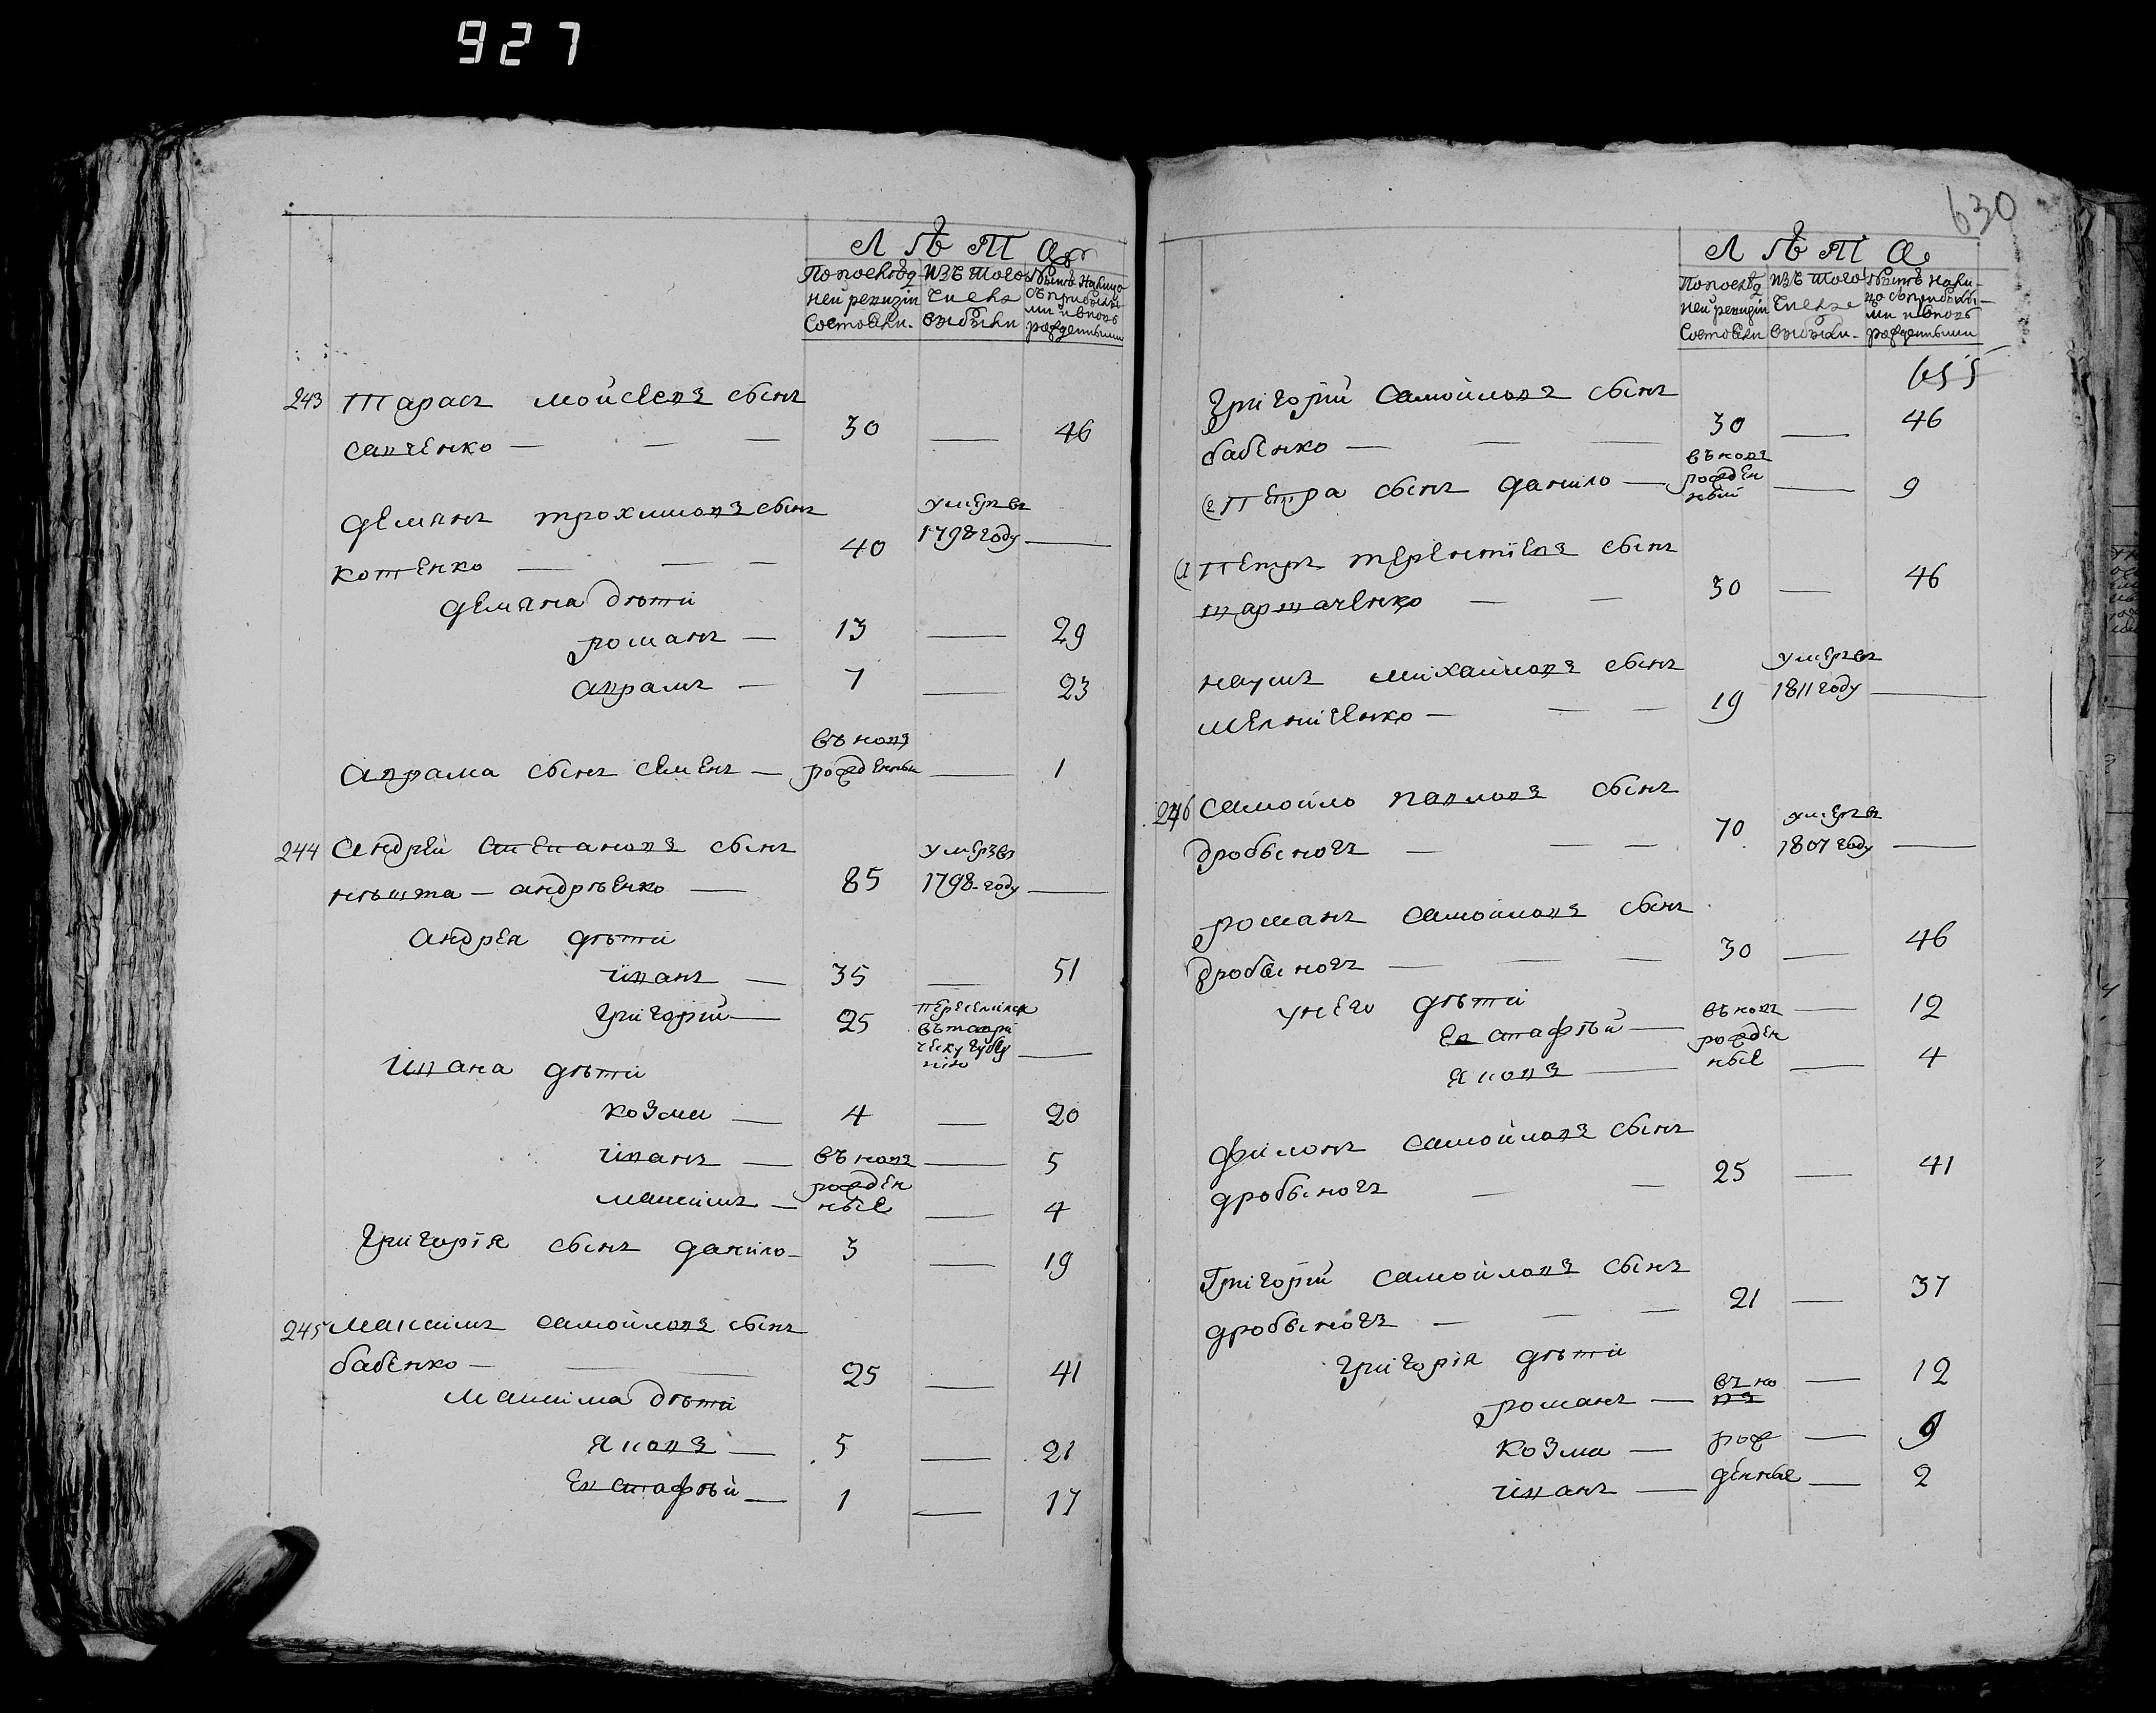 927
Л Ѣ Т А
По послѣд
ней ревизіи
Состояли.
Изъ того
числа
выбыли
Нынѣ на лицо
съ прибылы
ми и вновь
рожденными
243 Тарасъ мойсеевъ сынъ
савченко — — — 30 — 46
демянъ трохимовъ сынъ
котенко — — — 40 умеръ въ 1798 году —
демяна дѣти
романъ — 13 — 29
аврамъ — 7 — 23
аврама сынъ семенъ — въ новь рожденный — 1
244 андрей степановъ сынъ
андрѣенко — 85 умре въ 1798 году —
андрея дѣти
иванъ — 35 — 51
григорій — 25 переселился въ таври ческу губер нію —
ивана дѣти
козма — 4 — 20
иванъ — въ новъ — 5
рожден
максимъ — ные — 4
григорія сынъ данило — 3 — 19
245 максимъ самойловъ сынъ
бабенко — — 25 — 41
максима дѣти
яковъ — 5 — 21
евстафѣй — 1 — 17
630
Л Ѣ Т А
По послѣд
ней ревизіи
Состояли
Изъ того
числа
выбыли.
Нынѣ на ли
цо съ прибылы
ми и вновь
рожденными
655
григорій самойловъ сынъ
бабенко — — — 30 — 46
(2 петра сынъ данило — въ новъ рожден ный — 9
(1 петръ терентіевъ сынъ
— — 30 — 46
наумъ михайловъ сынъ
мелниченко — — — 19 умеръ въ 1811 году —
246 самойло павловъ сынъ
дробыногъ — — — 70 умеръ въ 1807 году —
романъ самойловъ сынъ
дробыногъ — — — 30 — 46
у него дѣти
евстафѣй — въ новъ — 12
рожден
яковъ — ные — 4
филонъ самойловъ сынъ
дробыногъ — — 25 — 41
Григорій самойловъ сынъ
дробыногъ — — — 21 — 37
григорія дѣти
романъ — въ но въ — 12
козма — рож — 9
иванъ — денные — 2